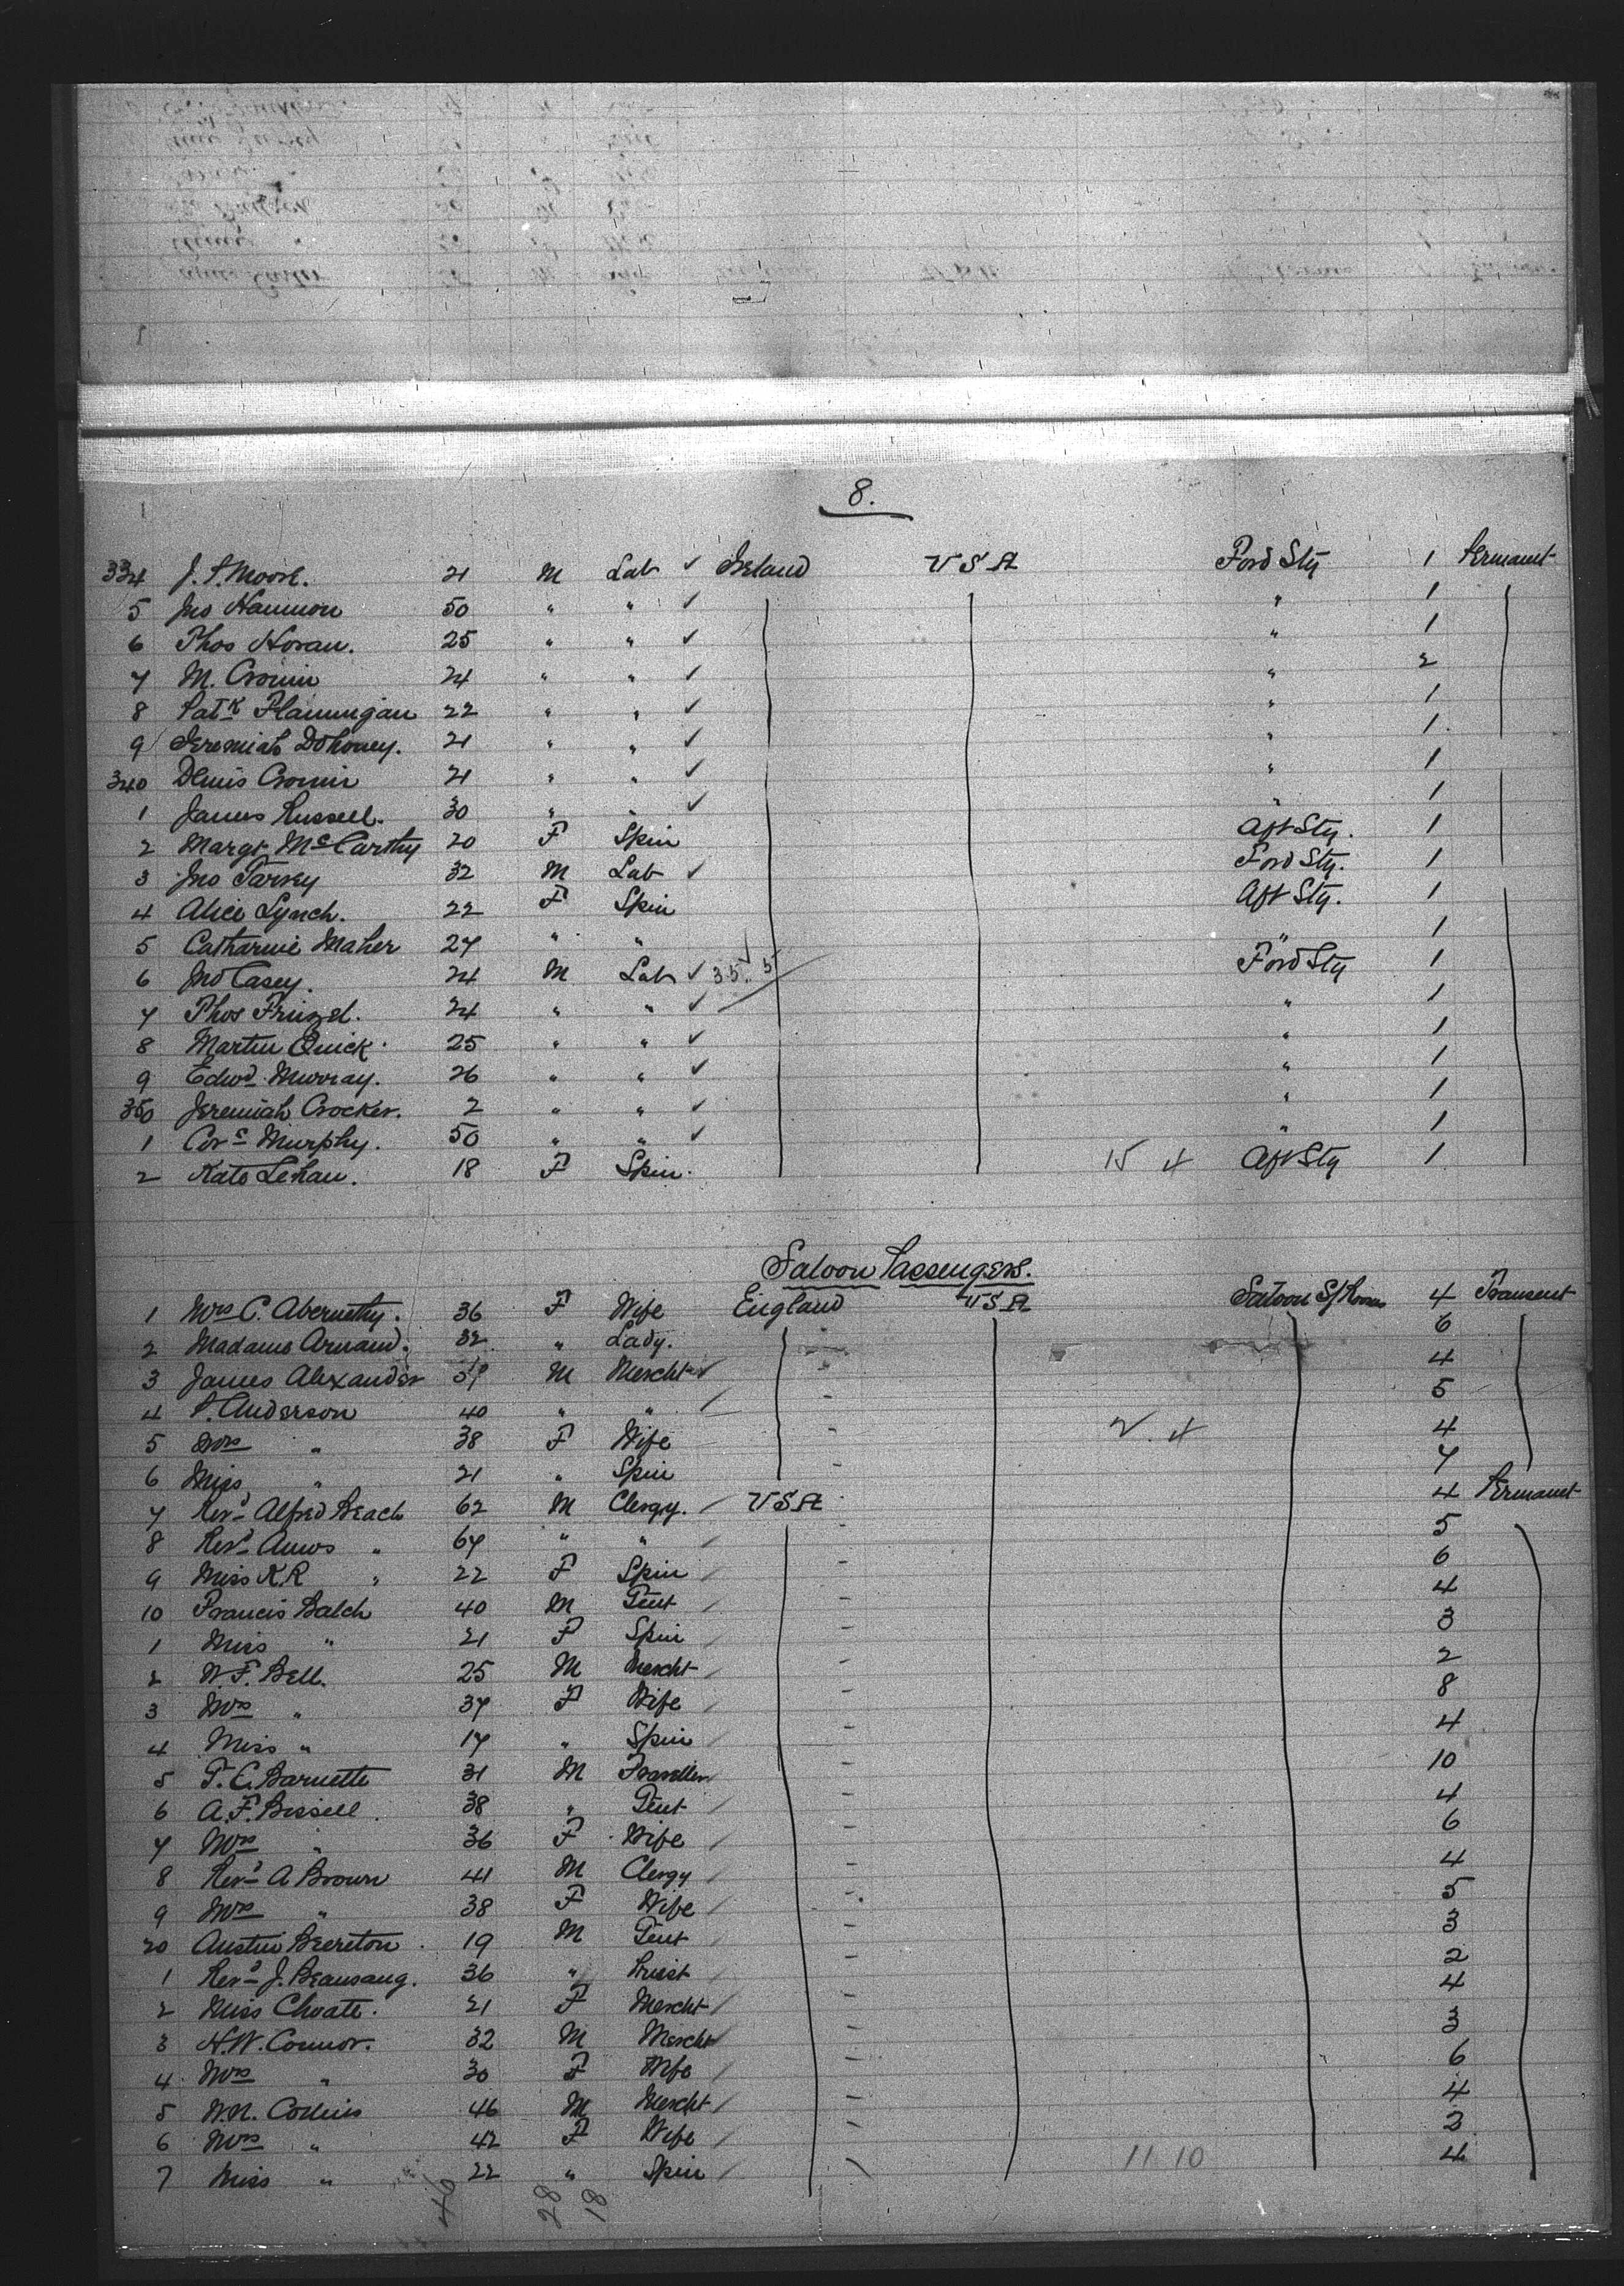 8.
334 J. P. Moore. 21 M Lab ✓ Ireland U S A Ford Stg 1 Permanet
5 Jno Hannon 50 " " ✓ " 1
6 Thos Horan. 25 " " ✓ " 1
7 M. Cronin 24 " " ✓ " 2
8 Patk Flannigan 22 " " ✓ " 1
9 Jeremiah Dohoney. 21 " " ✓ " 1
340 Denis Cronin 21 " " ✓ " 1
1 James Russell. 30 " " ✓ " 1
2 Margt McCarthy 20 F Spin Aft Stg. 1
3 Jno Tarvey 32 M Lab ✓ Ford Stg. 1
4 Alice Lynch. 22 F Spin Aft Stg. 1
5 Catharine Maher 27 " " " 1
6 Jno Casey. 24 M Lab ✓ 35. 5 Ford Stg 1
7 Thos Frinzel. 24 " " ✓ " 1
8 Martin Quick. 25 " " ✓ " 1
9 Edwd Murray. 26 " " ✓ " 1
350 Jeremiah Crocker. 2 " " ✓ " 1
1 Cors Murphy. 50 " " ✓ " 1
2 Kate Lehan. 18 F Spin. 15 4 Aft Stg 1
Saloon Passengers.
1 Mrs C. Abernethy. 36 F Wife England U S A Saloon S/Rooms 4 Transent
2 Madame Arnaud. 32 " Lady. 6
3 James Alexander 51 M Mercht ✓ 4
4 P. Anderson 40 " " / 5
5 Mrs " 38 F Wife 2. 4 4
6 Miss " 21 " Spin 7
7 Revd Alfred Beach 62 M Clergy. / U S A 4 Permanet
8 Revd Amos " 64 " " / 5
9 Miss K R " 22 F Spin / 6
10 Francis Balch 40 M Gent / 4
1 Miss " 21 F Spin / 3
2 W. F. Bell. 25 M Mercht / 2
3 Mrs " 37 F Wife / 8
4 Miss " 17 " Spin / 4
5 T. C. Barnette 31 M Traveller 10
6 A. F. Bissell. 38 " Gent / 4
7 Mrs " 36 F Wife / 6
8 Revd A Brown 41 M Clergy / 4
9 Mrs " 38 F Wife / 5
20 Austin Brereton. 19 M Gent / 3
1 Revd J. Beausang. 36 " Priest / 2
2 Miss Choate. 21 F Mercht / 4
3 H. W. Connor. 32 M Mercht 3
4 Mrs " 30 F Wife / 6
5 W. N. Collins 46 M Mercht / 4
6 Mrs " 42 F Wife / 2
7 Miss " 22 " Spin / 11 10 4
46 28 18